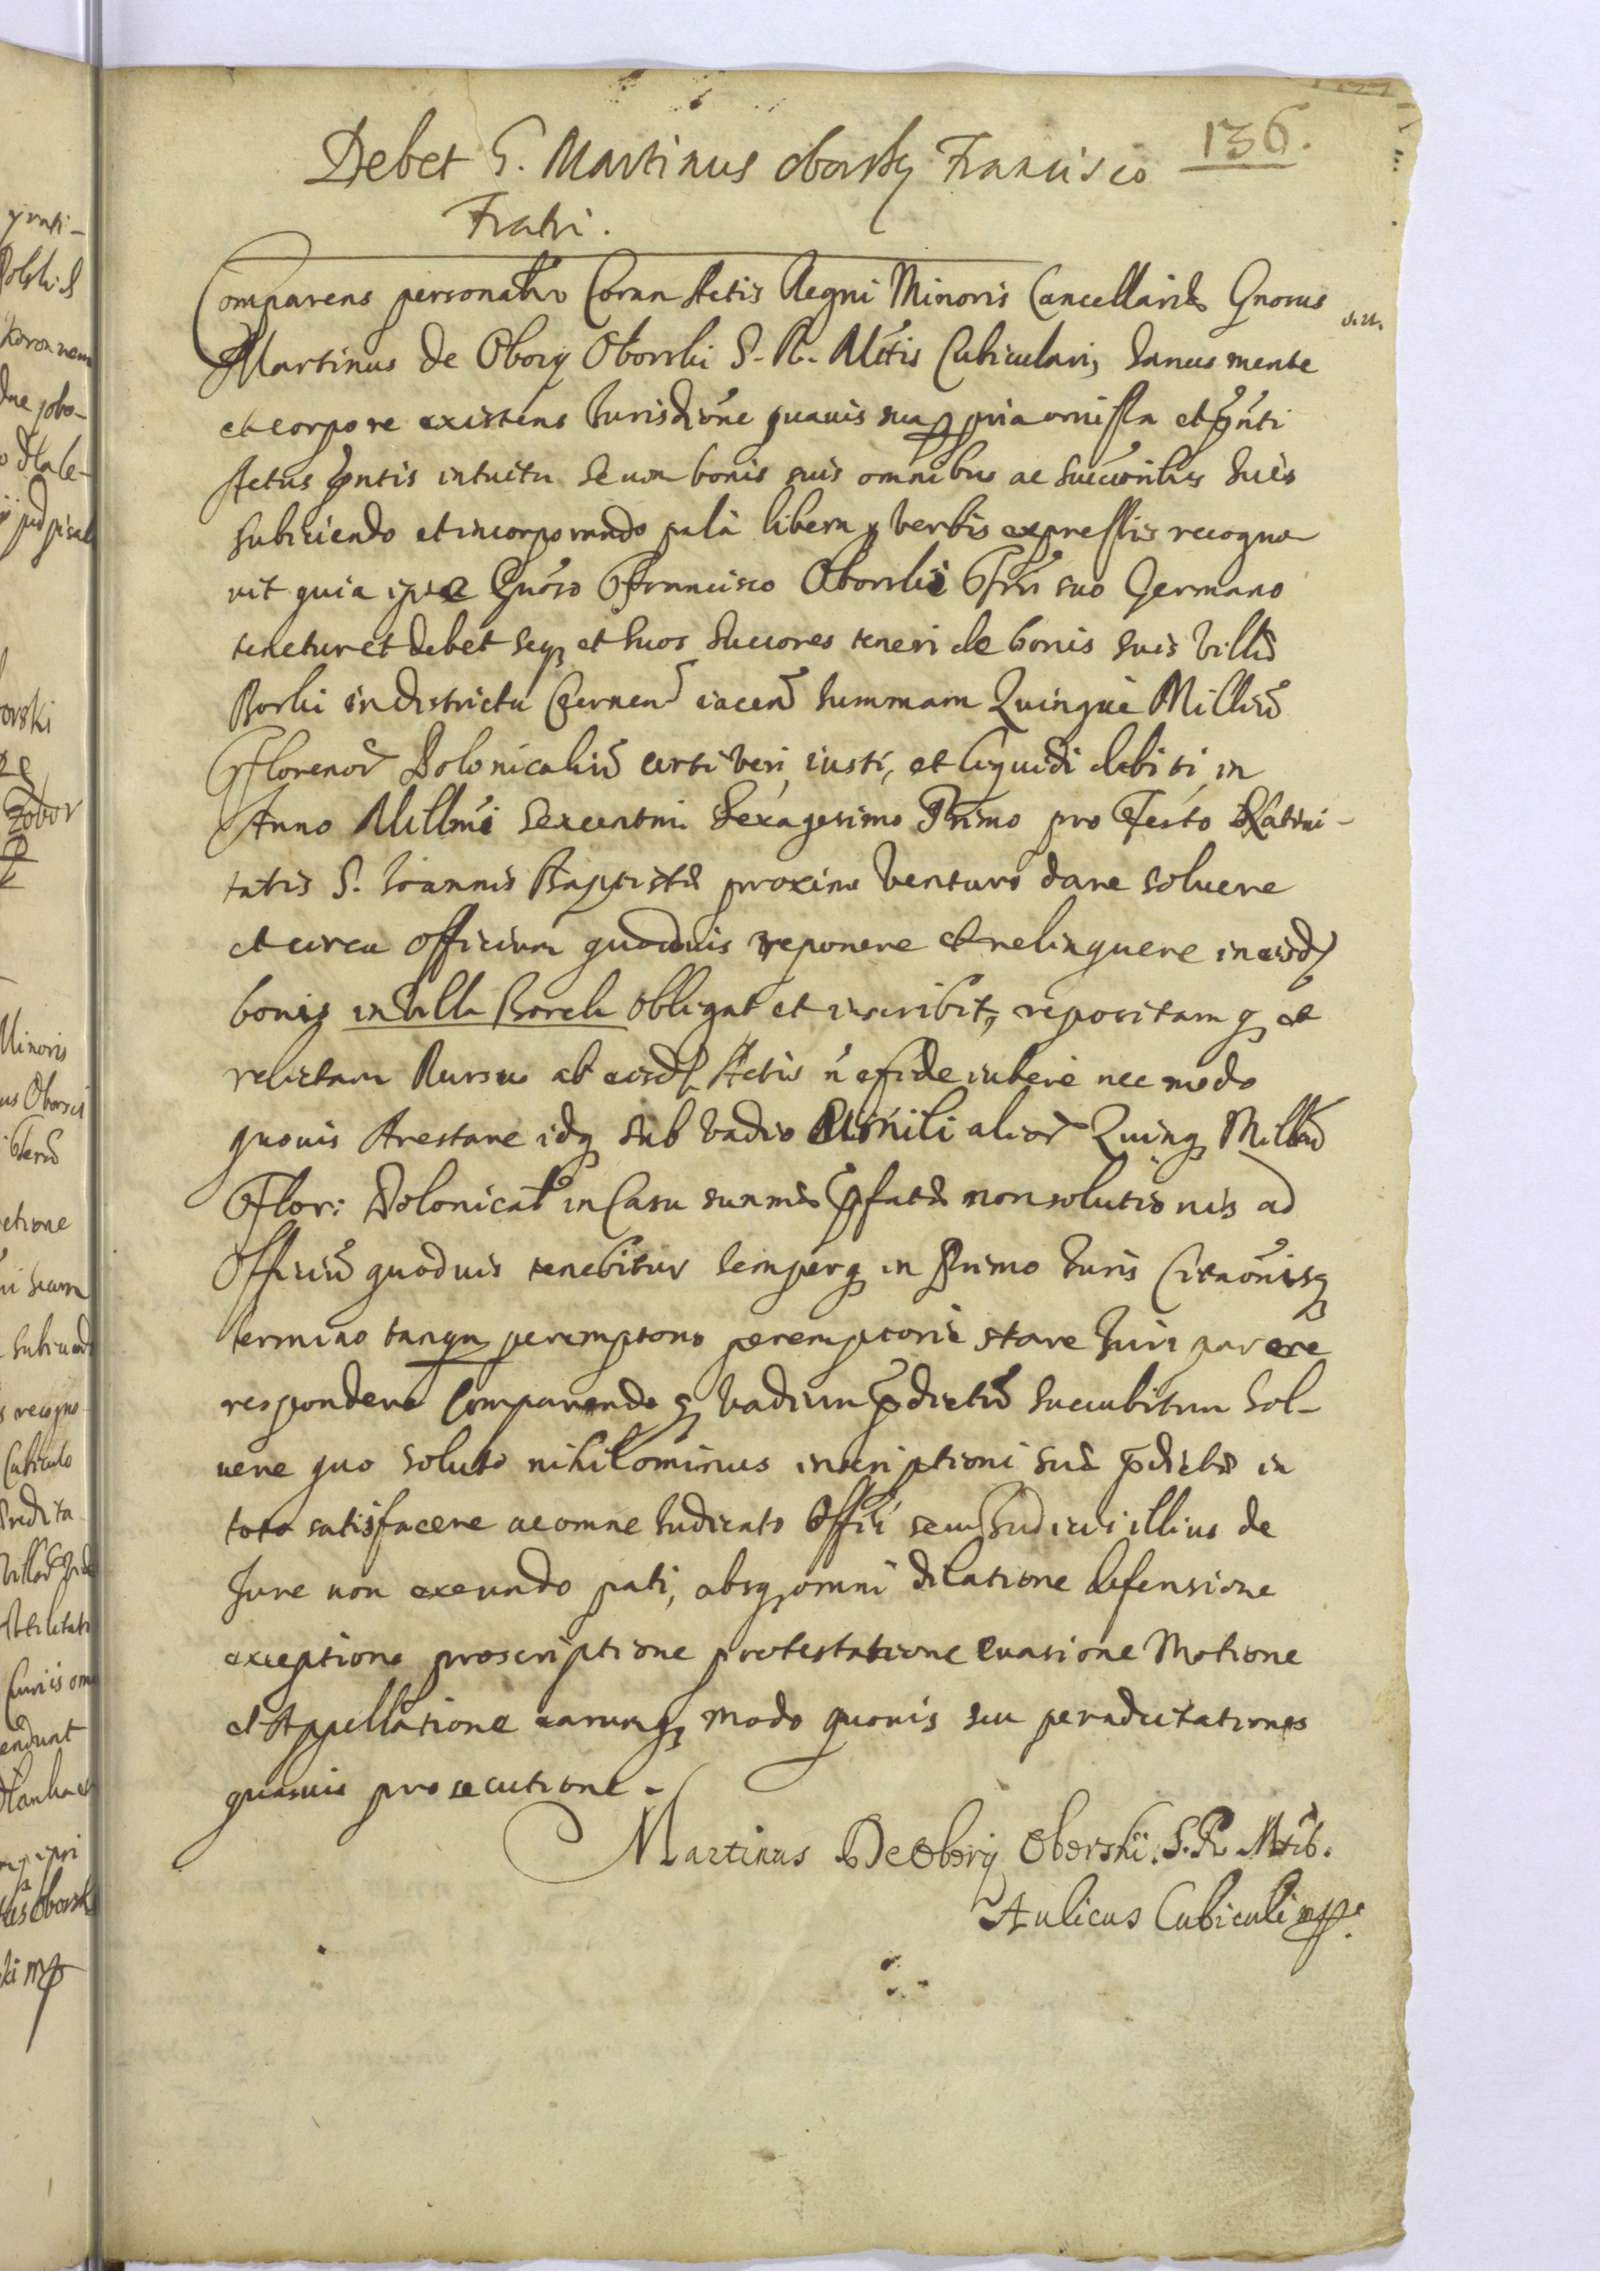 136.
Debet G. Martinus Oborsky Francisco
Fratri.
Comparens personalr Coram Actis Regni Minoris Cancellariæ Gnosus
Martinus de Obory Oborski S. R. Mttis Cubicularis, Sanus mente
et corpore existens Iurisdiõne quauis sua ppria omissa et pñti
Actus pntis intuitu se cum bonis suis omnibus ac succoribus suis
subiiciendo et incorporando palã libere y verbis expressis recogno
uit quia ipse Gnoso Francisco Oborski Frri suo Germano
tenetur et debet seq et suos succores teneri de bonis suis Villæ
Borki in districtu Czernen iacen summam Quinque Milliũ
Florenor Polonicaliũ certi veri, iusti, et liquidi debiti, in
Anno Millmo Sexcentmo Sexagesimo Primo pro Festo Natiui-
tatis S. Ioannis Baptistæ proxime venturo dare soluere
et circa Officium quoduis reponere et relinquere in eisd
bonis in Villa Borki obligat et inscribit, repositam q et
relictam Rursus ab eisd Actis ñ efideiubere nec modo
quouis Arestare idq sub vadio simili alior Quinq Milliũ
Flor: Polonical in Casu summæ pfatæ non solutionis ad
Officiũ quoduis tenebitur semperq in Primo Iuris Citaõnisq
termino tanqm peremptorio peremptorie stare Iuri parere
respondere Comparendo q vadium pdictũ succubitum sol-
uere quo soluto nihilominus inscriptioni suæ pdictæ in
toto satisfacere ac omne Iudicato Offii seu Iudicii illius de
Iure non exeundo pati, absq omni dilatione defensione
exceptione proscriptione protestatione euasione Motione
et Appellatione earumq modo quouis seu peradcitationes
quasuis prosecutione.
Martinus De Obory Oborski. S. R. Mtis.
Aulicus Cubiculi mpp.